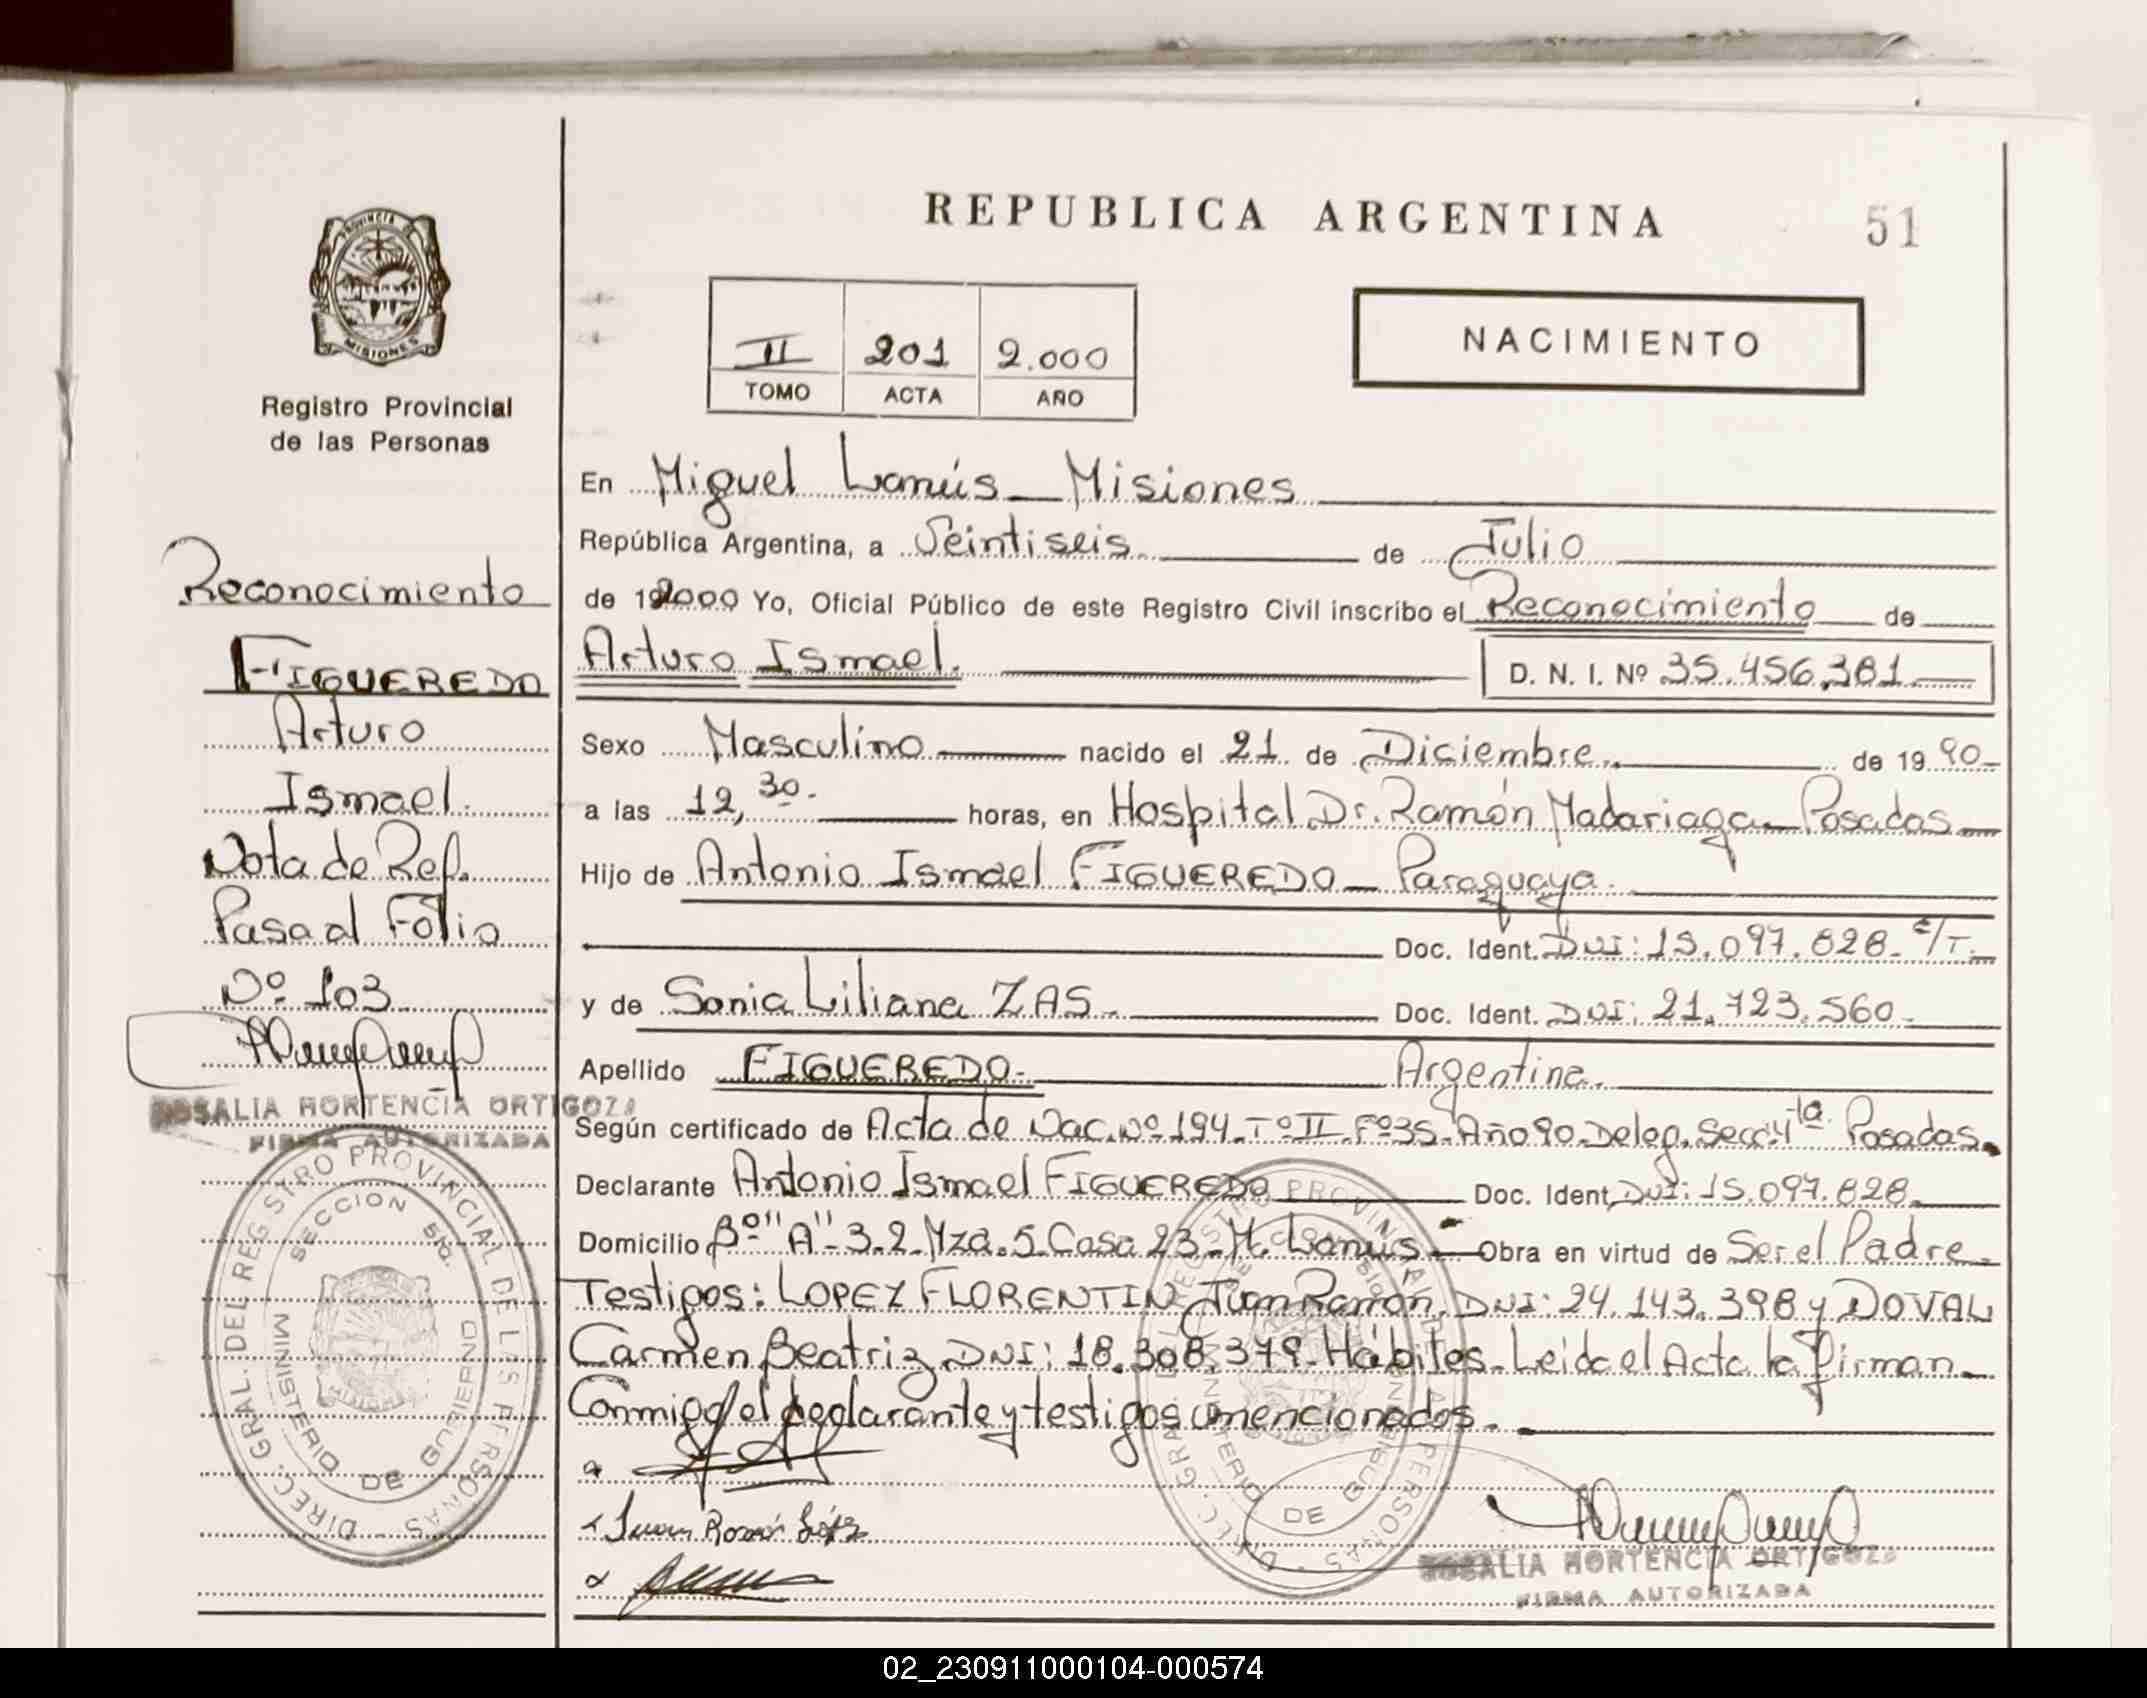 REPUBLICA ARGENTINA
51
PROVINCIA DE
MISIONES
Registro Provincial
de las Personas
II 201 2.000
TOMO ACTA AÑO
NACIMIENTO
Reconocimiento
FIGUEREDO
Arturo
Ismael.
Nota de Ref.
Pasa al Folio
Nº 103
ROSALIA HORTENCIA ORTIGOZA
FIRMA AUTORIZADA
DIREC. GRAL. DEL REGISTRO PROVINCIAL DE LAS PERSONAS
SECCION 5ta.
MINISTERIO DE GOBIERNO
En Miguel Lanús - Misiones
República Argentina, a Veintiseis de Julio
de 192000 Yo, Oficial Público de este Registro Civil inscribo el Reconocimiento de
Arturo Ismael. D. N. I. Nº 35.456.381
Sexo Masculino nacido el 21 de Diciembre de 19 90
a las 12,30. horas, en Hospital Dr. Ramón Madariaga - Posadas
Hijo de Antonio Ismael FIGUEREDO - Paraguaya.
Doc. Ident. DNI: 15.097.828. E/T.
y de Sonia Liliana ZAS. Doc. Ident. DNI: 21.723.560.
Apellido FIGUEREDO. Argentina.
Según certificado de Acta de Nac. Nº 194 - Tº II. Fº 35 - Año 90 - Deleg. Secc. 4ta. Posadas.
Declarante Antonio Ismael FIGUEREDO Doc. Ident. DNI: 15.097.828.
Domicilio Bº "A" - 3.2. Mza. 5. Casa 23 - M. Lanús - Obra en virtud de Ser el Padre.
Testigos: LOPEZ FLORENTIN, Juan Ramón. DNI: 24.143.398 y DOVAL
Carmen Beatriz DNI: 18.308.379 - Hábiles - Leida el Acta la firman
Conmigo el declarante y testigos mencionados.
Juan Ramón López
DIREC. GRAL. DEL REGISTRO PROVINCIAL DE LAS PERSONAS
MINISTERIO DE GOBIERNO
ROSALIA HORTENCIA ORTIGOZA
FIRMA AUTORIZADA
02_230911000104-000574